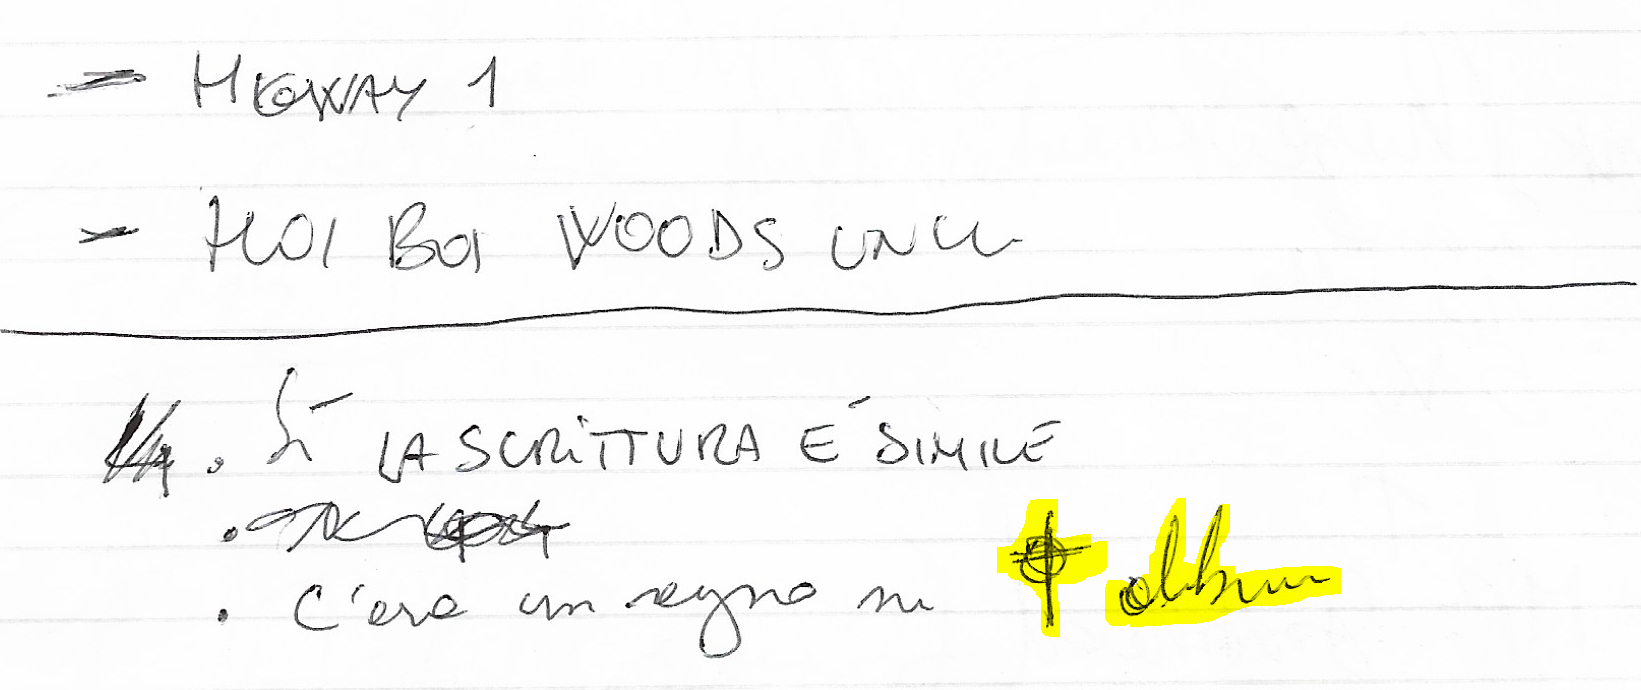 - HIGWAY 1
- HOI BOI WOODS UNCL
. Sì LA SCRITTURA È SIMILE
. C'era un segno su album